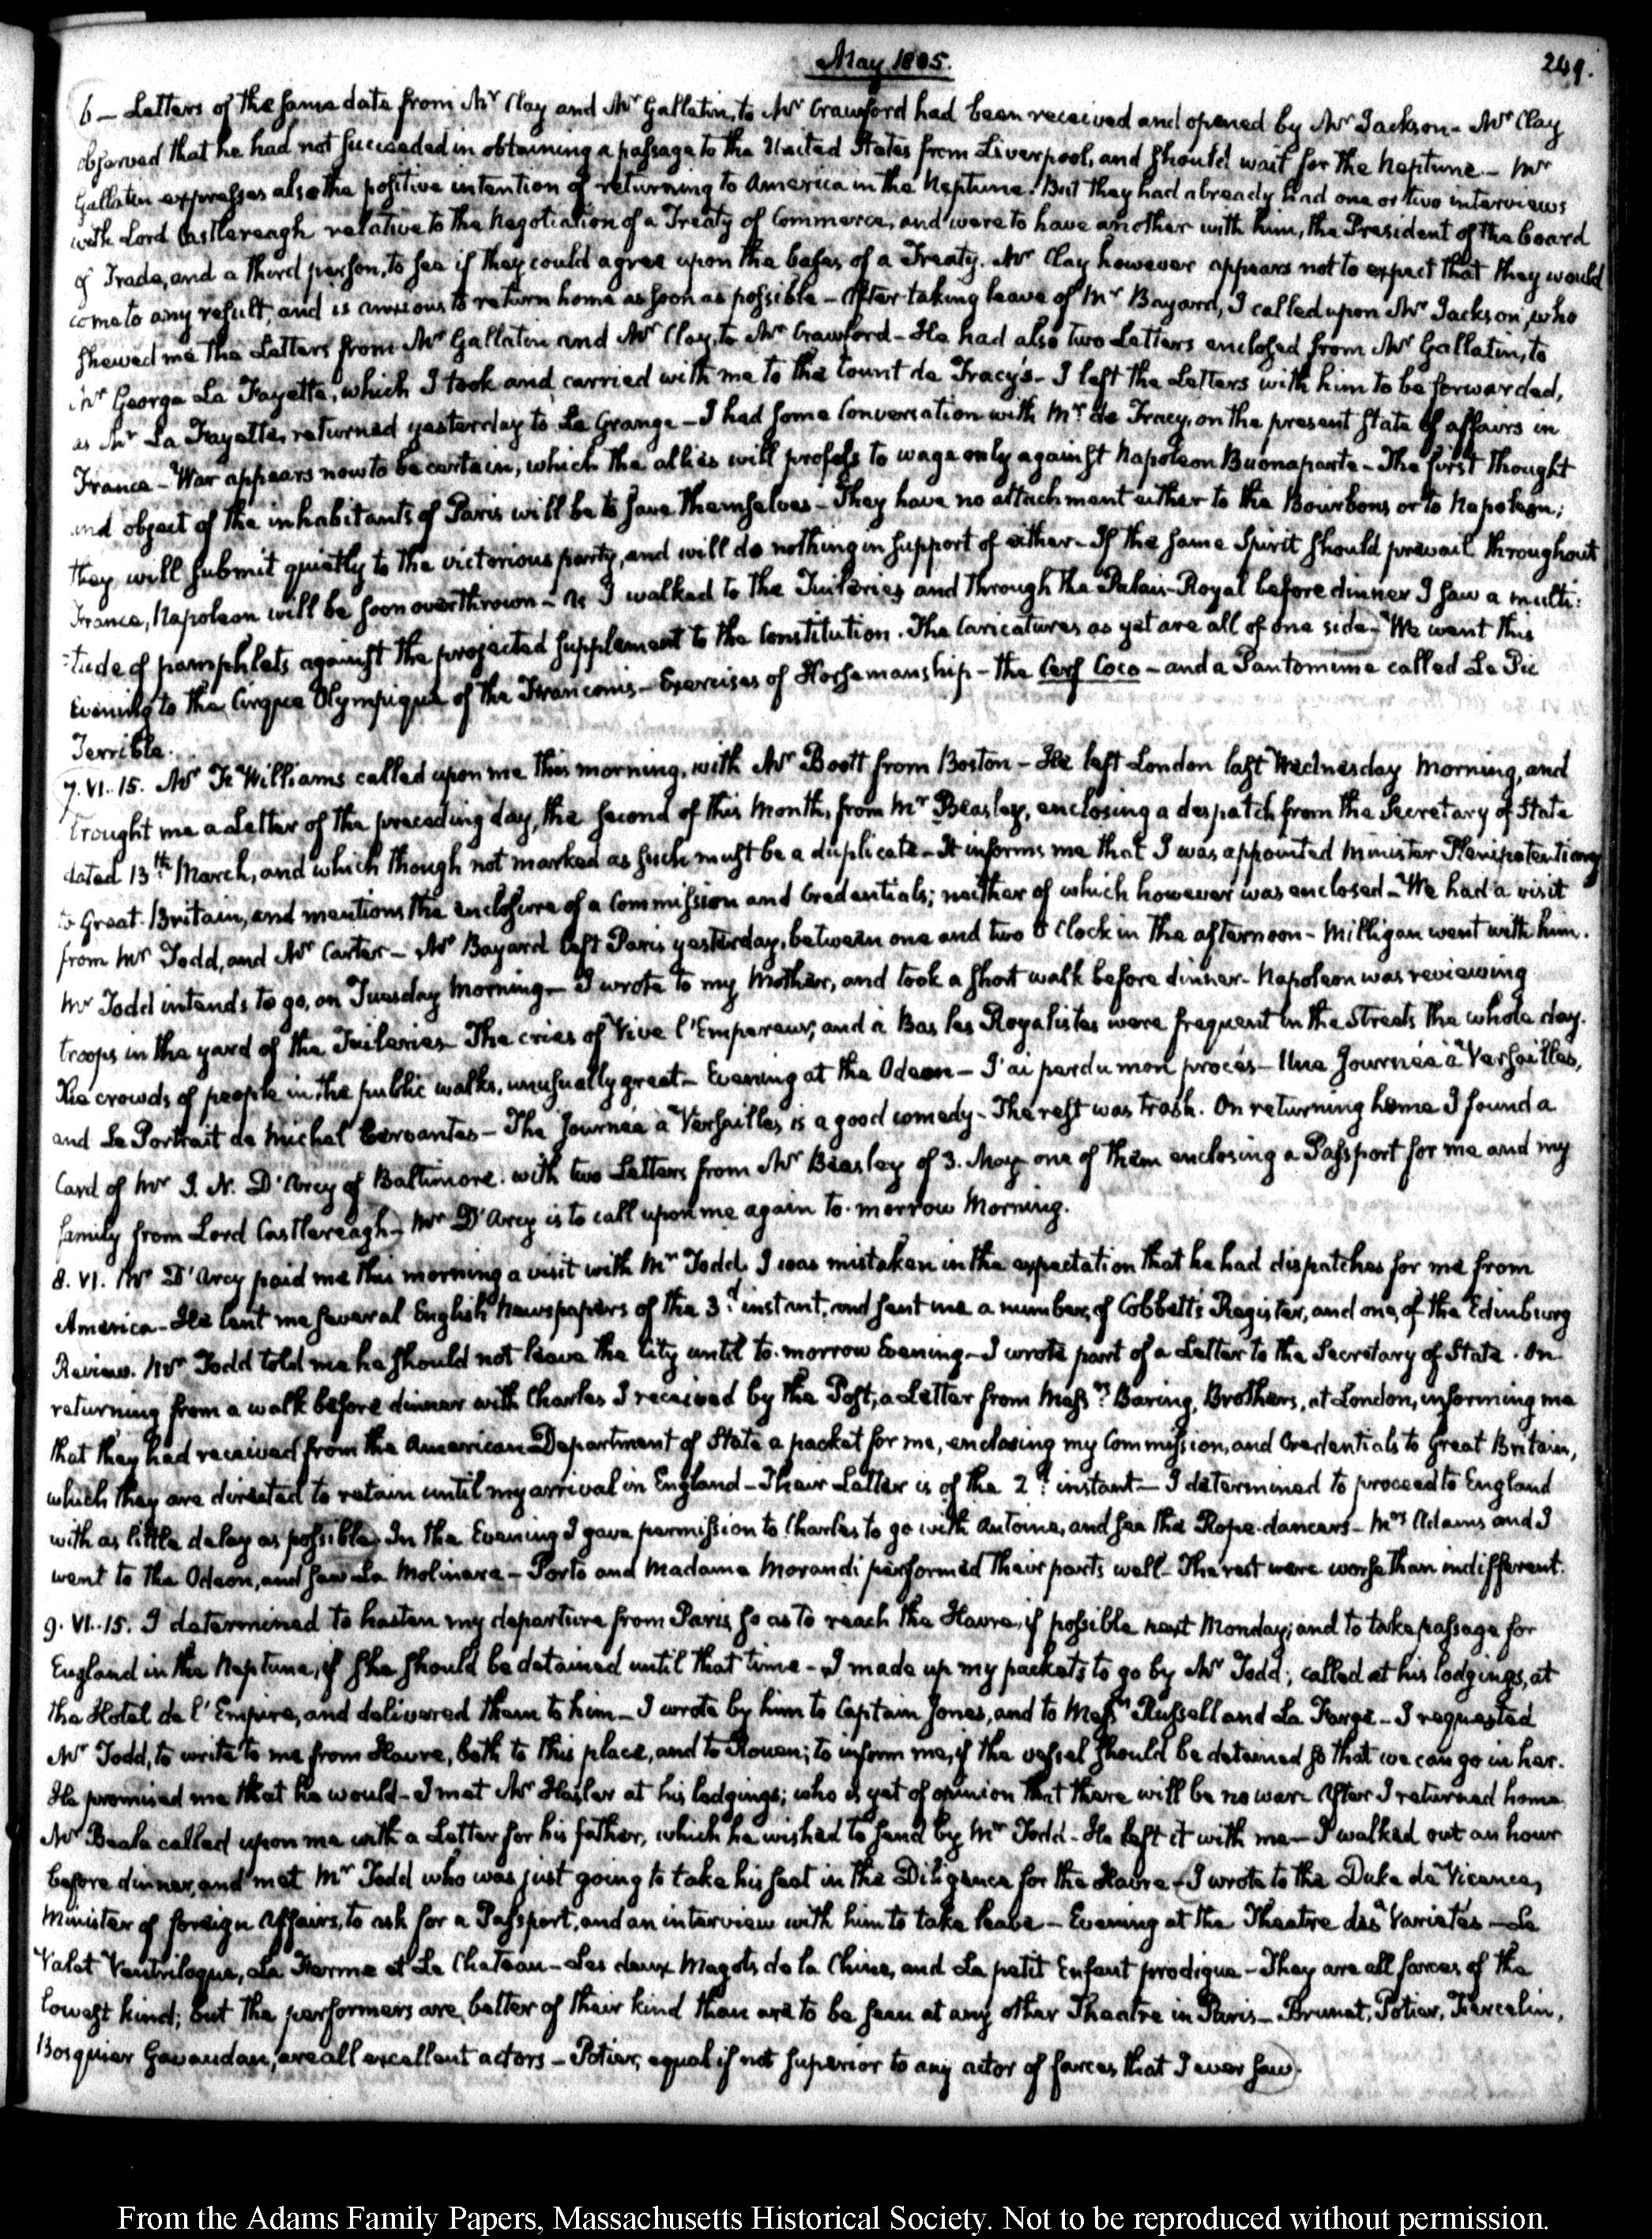 May 1805.
249.
6 — Letters of the same date from Mr Clay and Mr Gallatin, to Mr Crawford had been received and opened by Mr Jackson - Mr Clay
observed that he had not succeeded in obtaining a passage to the United States from Liverpool, and should wait for the Neptune — Mr
Gallatin expresses also the positive intention of returning to America in the Neptune. But they had already had one or two interviews
with Lord Castlereagh relative to the Negotiation of a Treaty of Commerce, and were to have another with him, the President of the board
of Trade, and a third person, to see if they could agree upon the bases of a Treaty. Mr Clay however appears not to expect that they would
come to any result, and is anxious to return home as soon as possible — After taking leave of Mr Bayard, I called upon Mr Jackson, who
shewed me the Letters from Mr Gallatin and Mr Clay, to Mr Crawford — He had also two Letters enclosed from Mr Gallatin, to
Mr George La Fayette, which I took and carried with me to the Count de Tracy's — I left the Letters with him to be forwarded,
as Mr La Fayette, returned yesterday to La Grange — I had some Conversation with Mr de Tracy, on the present State of affairs in
France — War appears now to be certain, which the allies will profess to wage only against Napoleon Buonaparte — The first thought
and object of the inhabitants of Paris will be to save themselves — They have no attachment either to the Bourbons or to Napoleon;
they will submit quietly to the victorious party, and will do nothing in support of either — If the same Spirit should prevail throughout
France, Napoleon will be soon overthrown — As I walked to the Tuileries and through the Palais-Royal before dinner I saw a multi:
:tude of pamphlets against the projected supplement to the Constitution. The Caricatures as yet are all of one side — We went this
Evening to the Cirque Olympique of the Franconis — Exercises of Horsemanship — the Cerf Coco — and a Pantomime called Le Pie
Terrible.
7. VI. 15. Mr Williams called upon me this morning, with Mr Boott from Boston — He left London last Wednesday Morning, and
brought me a Letter of the preceding day, the second of this Month, from Mr Beasley, enclosing a despatch from the Secretary of State
dated 13th March, and which though not marked as such must be a duplicate — It informs me that I was appointed Minister Plenipotentiary
to Great-Britain, and mentions the enclosure of a Commission and Credentials; neither of which however was enclosed — We had a visit
from Mr Todd, and Mr Carter — Mr Bayard left Paris yesterday, between one and two O'Clock in the afternoon — Milligan went with him.
Mr Todd intends to go, on Tuesday Morning — I wrote to my Mother, and took a short walk before dinner — Napoleon was reviewing
troops in the yard of the Tuileries — The cries of Vive l'Empereur, and à Bas les Royalistes were frequent in the Streets the whole day.
The crowds of people in the public walks, unusually great — Evening at the Odeon — J'ai perdu mon procès — Une Journée à Versailles,
and Le Portrait de Michel Cervantes — The Journée à Versailles is a good comedy — The rest was trash. On returning home I found a
Card of Mr J. N. D'Arcy of Baltimore. with two Letters from Mr Beasley of 3. May one of them enclosing a Passport for me and my
family from Lord Castlereagh — Mr D'Arcy is to call upon me again to-morrow Morning.
8. VI. Mr D'Arcy paid me this morning a visit with Mr Todd. I was mistaken in the expectation that he had dispatches for me from
America — He lent me several English Newspapers of the 3d instant, and sent me a number, of Cobbett's Register, and one, of the Edinburg
Review. Mr Todd told me he should not leave the City until to-morrow Evening — I wrote part of a Letter to the Secretary of State. On
returning from a walk before dinner with Charles I received by the Post, a Letter from Messrs Baring, Brothers, at London, informing me
that they had received from the American Department of State a packet for me, enclosing my Commission, and Credentials to Great Britain,
which they are directed to retain until my arrival in England — Their Letter is of the 2d instant — I determined to proceed to England
with as little delay as possible. In the Evening I gave permission to Charles to go with Antoine, and see the Rope-dancers — Mrs Adams and I
went to the Odeon, and saw La Molinara — Porto and Madame Morandi performed their parts well — The rest were worse than indifferent.
9. VI. 15. I determined to hasten my departure from Paris so as to reach the Havre, if possible next Monday; and to take passage for
England in the Neptune, if she should be detained until that time — I made up my packets to go by Mr Todd; called at his lodgings, at
the Hotel de l'Empire, and delivered them to him — I wrote by him to Captain Jones, and to Messrs Russell and La Farge — I requested
Mr Todd, to write to me from Havre, both to this place, and to Rouen; to inform me, if the vessel should be detained so that we can go in her.
He promised me that he would — I met Mr Hasler at his lodgings; who is yet of opinion that there will be no war. After I returned home
Mr Beale called upon me with a Letter for his father, which he wished to send by Mr Todd — He left it with me — I walked out an hour
before dinner, and met Mr Todd who was just going to take his seat in the Diligence for the Havre — I wrote to the Duke de Vicence,
Minister of foreign Affairs, to ask for a Passport, and an interview with him to take leave — Evening at the Theatre des Varietés — Le
Valet Ventriloque, La Ferme et Le Chateau — Les deux Magots de la Chine, and Le petit Enfant prodigue — They are all farces of the
lowest kind; but the performers are better of their kind than are to be seen at any other Theatre in Paris — Brunet, Potier, Tiercelin,
Bosquier Gavaudan, are all excellent actors — Potier, equal if not superior to any actor of farces that I ever saw.
From the Adams Family Papers, Massachusetts Historical Society. Not to be reproduced without permission.